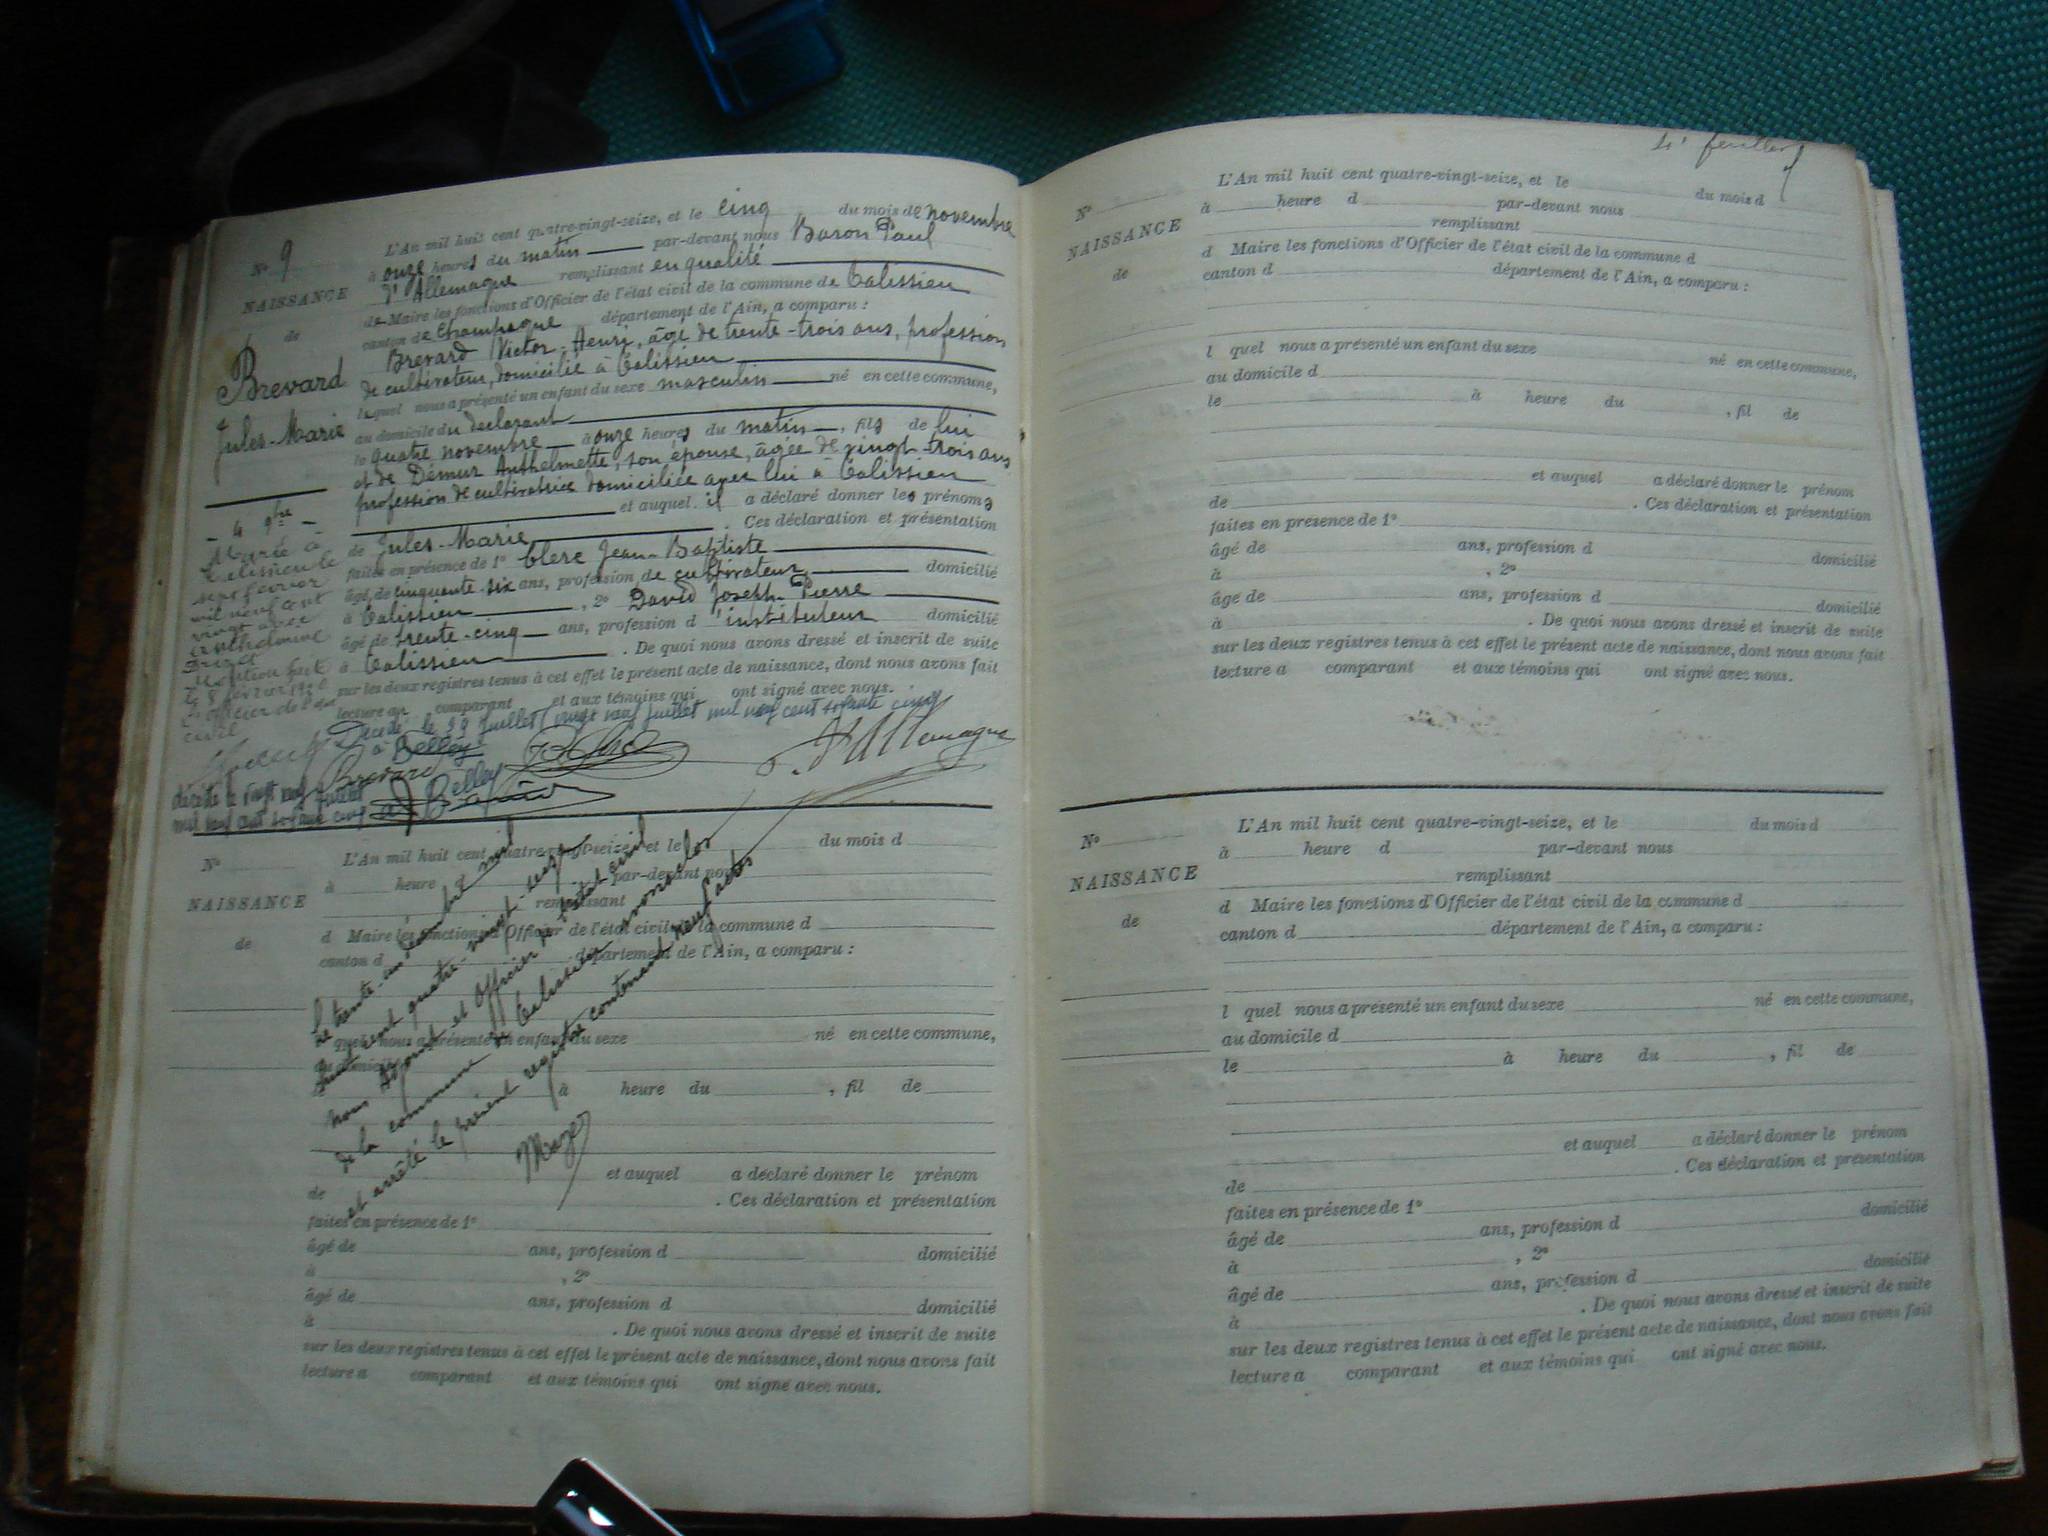 Nº 9
NAISSANCE
de
Brevard
Jules-Marie
- 4 9bre -
Marié à
Talissieu le
sept février
mil neuf cent
vingt avec
Anthelmine
Mention faite
le 8 février 1920
L'officier de l'état
civil
L'An mil huit cent quatre-vingt-seize, et le cinq du mois de novembre
à onze heures du matin par-devant nous Baron Paul
d'Allemagne remplissant en qualité
de Maire les fonctions d'Officier de l'état civil de la commune de Talissieu
canton de Champagne département de l'Ain, a comparu :
Brevard Victor-Henri, âgé de trente-trois ans, profession
de cultivateur, domicilié à Talissieu
lequel nous a présenté un enfant du sexe masculin né en cette commune,
au domicile du déclarant
le quatre novembre à onze heures du matin, fils de lui
et de Démur Anthelmette, son épouse, âgée de vingt-trois ans
profession de cultivatrice domiciliée avec lui à Talissieu
et auquel il a déclaré donner les prénoms
de Jules-Marie . Ces déclaration et présentation
faites en présence de 1º Clerc Jean-Baptiste
âgé de cinquante-six ans, profession de cultivateur domicilié
à Talissieu , 2º David Joseph-Pierre
âgé de trente-cinq ans, profession d'instituteur domicilié
à Talissieu . De quoi nous avons dressé et inscrit de suite
sur les deux registres tenus à cet effet le présent acte de naissance, dont nous avons fait
lecture au comparant et aux témoins qui ont signé avec nous.
Décédé le 29 juillet (vingt neuf juillet mil neuf cent soixante cinq
à Belley
Brevard
d'Allemagne
décédé le vingt neuf juillet
mil neuf cent soixante cinq à Belley
Nº
NAISSANCE
de
L'An mil huit cent quatre-vingt-seize, et le du mois d
à heure d par-devant nous
remplissant
d Maire les fonctions d'Officier de l'état civil de la commune d
canton d département de l'Ain, a comparu :
l quel nous a présenté un enfant du sexe né en cette commune,
au domicile d
le à heure du , fil de
et auquel a déclaré donner le prénom
de . Ces déclaration et présentation
faites en présence de 1º
âgé de ans, profession d domicilié
à , 2º
âgé de ans, profession d domicilié
à . De quoi nous avons dressé et inscrit de suite
sur les deux registres tenus à cet effet le présent acte de naissance, dont nous avons fait
lecture a comparant et aux témoins qui ont signé avec nous.
Le trente-un décembre mil
huit cent quatre-vingt-seize
nous adjoint et officier de l'état civil
de la commune de Talissieu avons clos
et arrêté le présent registre contenant neuf actes
4e feuillet
Nº
NAISSANCE
de
L'An mil huit cent quatre-vingt-seize, et le du mois d
à heure d par-devant nous
remplissant
d Maire les fonctions d'Officier de l'état civil de la commune d
canton d département de l'Ain, a comparu :
l quel nous a présenté un enfant du sexe né en cette commune,
au domicile d
le à heure du , fil de
et auquel a déclaré donner le prénom
de . Ces déclaration et présentation
faites en présence de 1º
âgé de ans, profession d domicilié
à , 2º
âgé de ans, profession d domicilié
à . De quoi nous avons dressé et inscrit de suite
sur les deux registres tenus à cet effet le présent acte de naissance, dont nous avons fait
lecture a comparant et aux témoins qui ont signé avec nous.
Nº
NAISSANCE
de
L'An mil huit cent quatre-vingt-seize, et le du mois d
à heure d par-devant nous
remplissant
d Maire les fonctions d'Officier de l'état civil de la commune d
canton d département de l'Ain, a comparu :
l quel nous a présenté un enfant du sexe né en cette commune,
au domicile d
le à heure du , fil de
et auquel a déclaré donner le prénom
de . Ces déclaration et présentation
faites en présence de 1º
âgé de ans, profession d domicilié
à , 2º
âgé de ans, profession d domicilié
à . De quoi nous avons dressé et inscrit de suite
sur les deux registres tenus à cet effet le présent acte de naissance, dont nous avons fait
lecture a comparant et aux témoins qui ont signé avec nous.